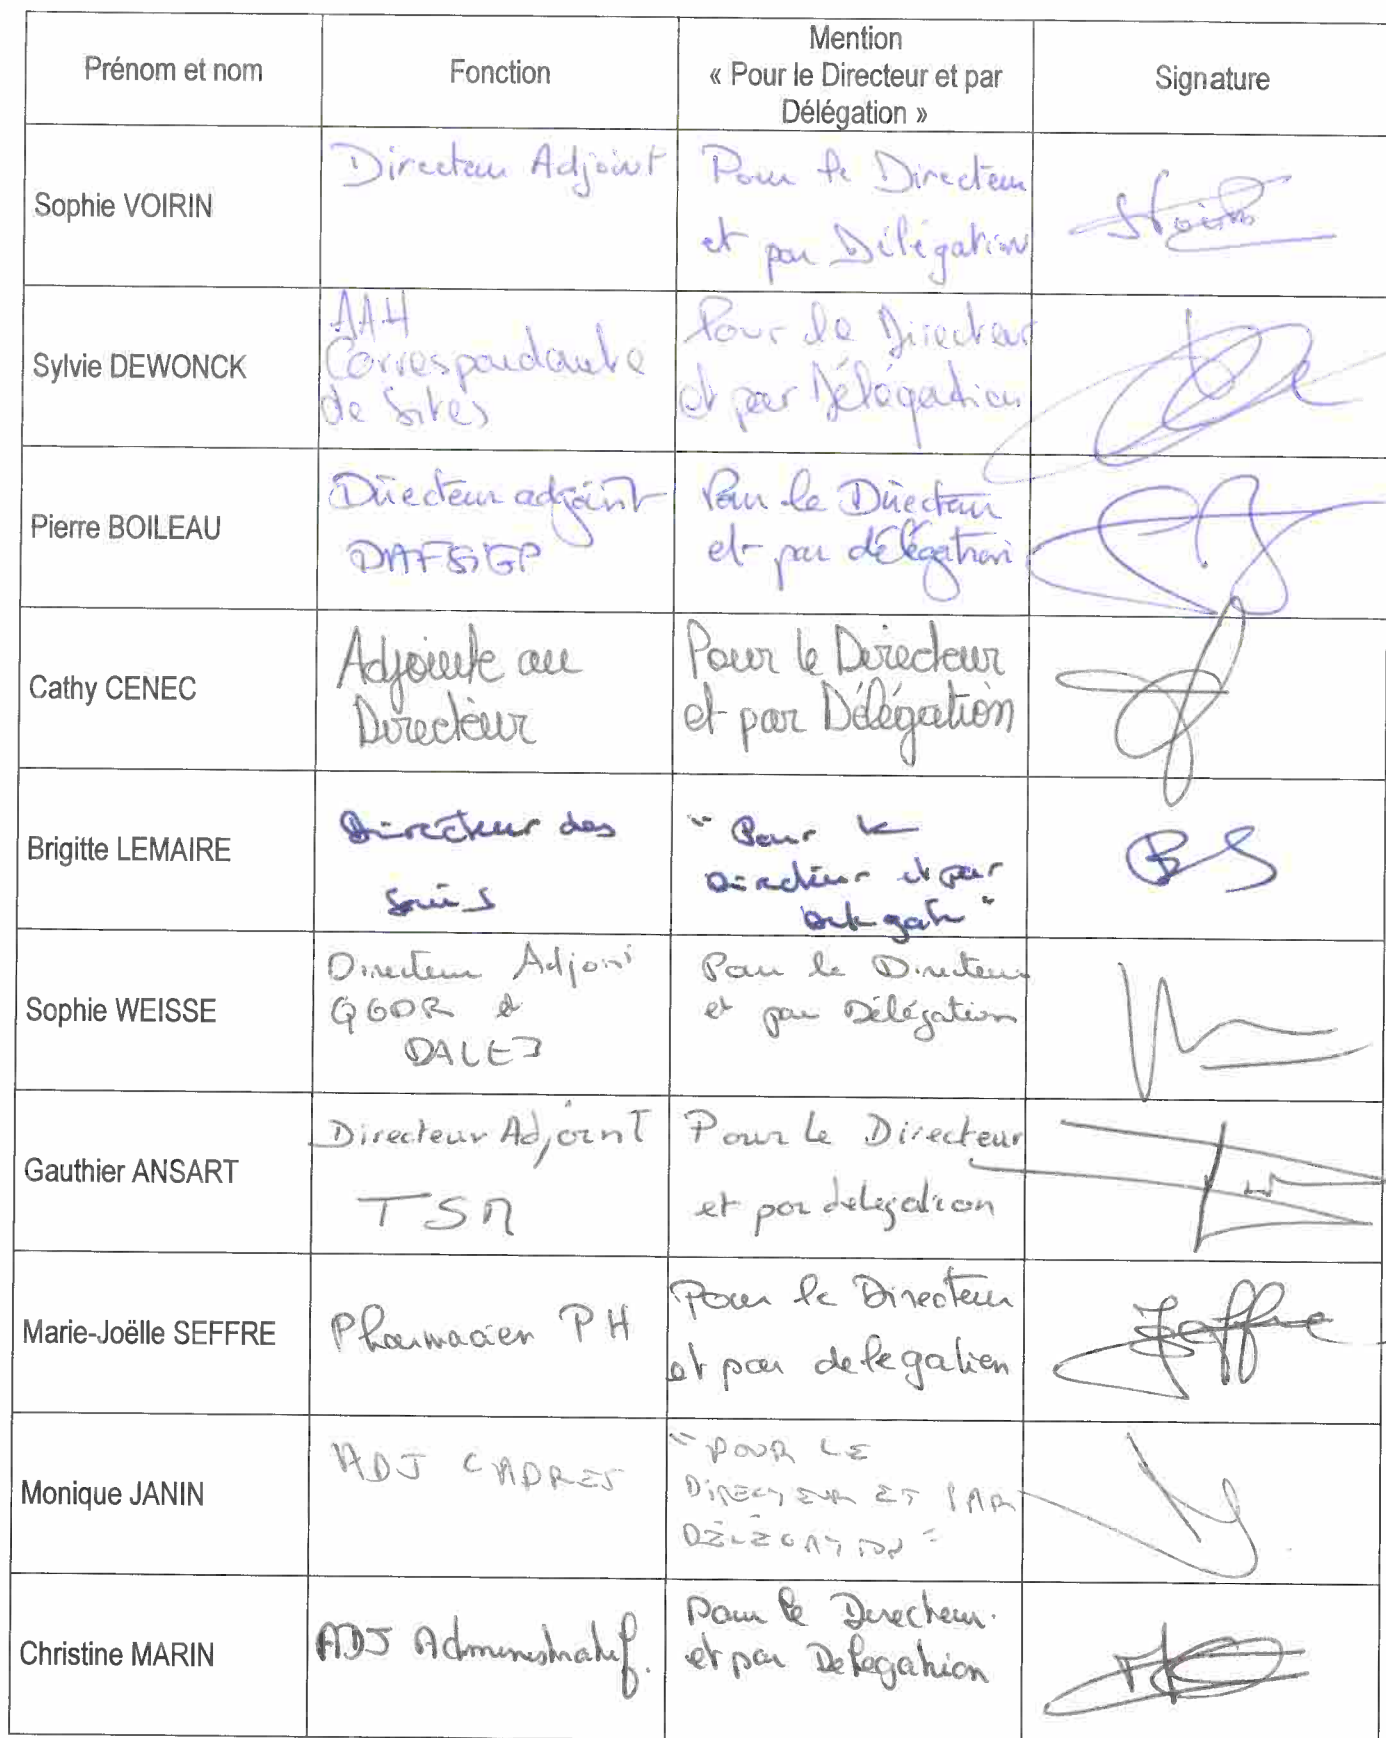 Prénom et nom
Fonction
Mention
« Pour le Directeur et par
Délégation »
Signature
Sophie VOIRIN
Directeur Adjoint
Pour le Directeur
et par Délégation
SVoirin
Sylvie DEWONCK
AAH
Correspondante
de Sites
Pour le Directeur
et par Délégation
Pierre BOILEAU
Directeur adjoint
Pour le Directeur
et par délégation
Cathy CENEC
Adjointe au
Directeur
Pour le Directeur
et par Délégation
Brigitte LEMAIRE
Directeur des
Soins
" Pour le
Directeur et par
Sophie WEISSE
Directeur Adjoint
QGDR et
Pour le Directeur
et par Délégation
Gauthier ANSART
Directeur Adjoint
Pour le Directeur
et par delegation
Marie-Joëlle SEFFRE
Pharmacien PH
Pour le Directeur
et par delegation
Seffre
Monique JANIN
ADJ CADRES
"POUR LE
DIRECTEUR ET PAR
DÉLÉGATION"
Christine MARIN
ADJ Administratif.
Pour le Directeur.
et par Delegation